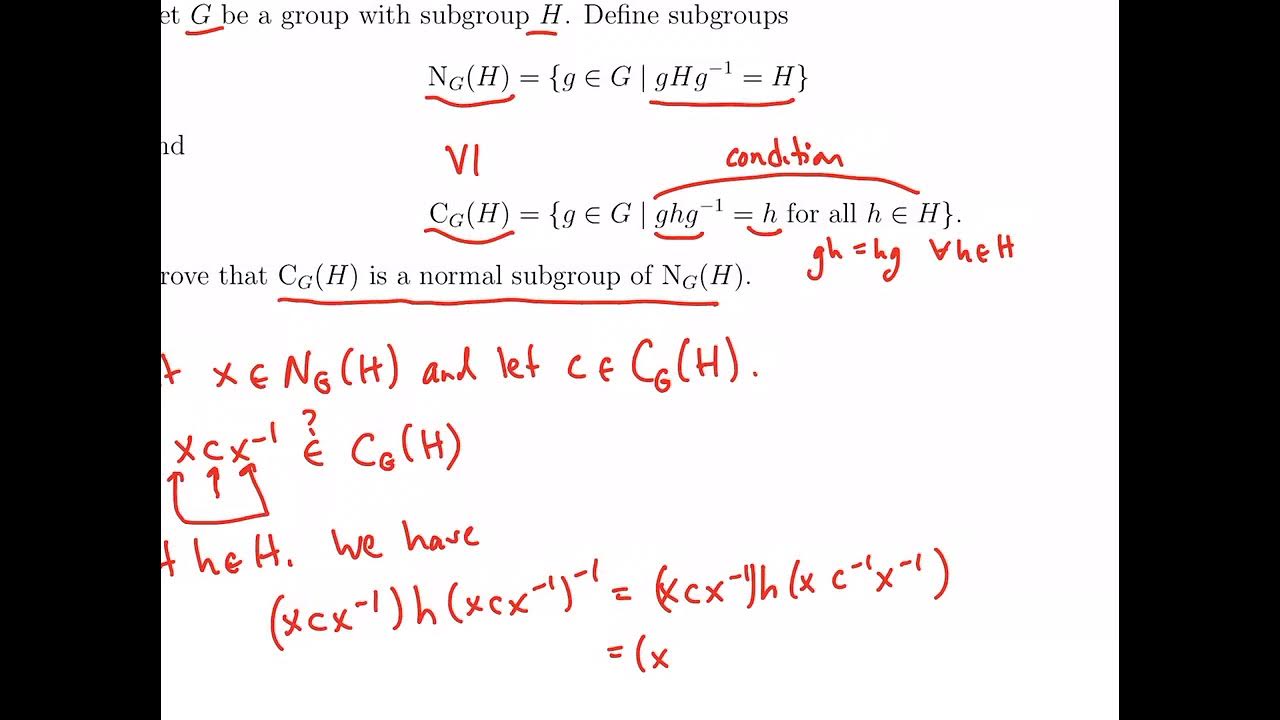 et G be a group with subgroup H. Define subgroups
N_G(H) = {g ∈ G | gHg⁻¹ = H}
nd
VI
condition
C_G(H) = {g ∈ G | ghg⁻¹ = h for all h ∈ H}.
gh = hg ∀h∈H
rove that C_G(H) is a normal subgroup of N_G(H).
t x ∈ N_G(H) and let c ∈ C_G(H).
?
xcx⁻¹ ∈ C_G(H)
t h∈H. We have
(xcx⁻¹)h(xcx⁻¹)⁻¹ = (xcx⁻¹)h(x c⁻¹x⁻¹)
= (x